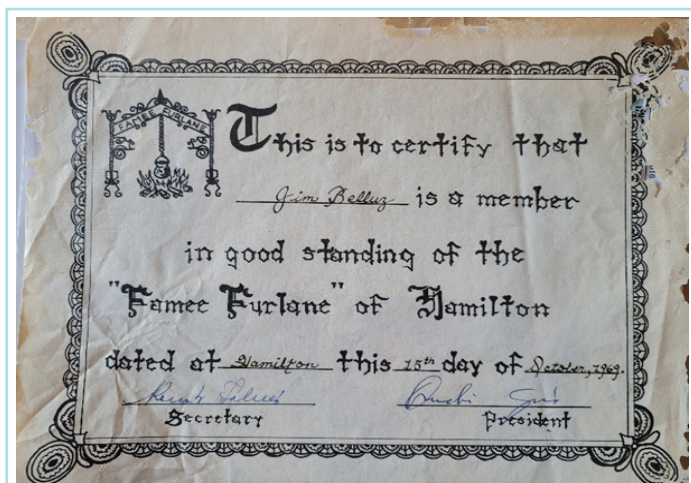 FAMEE FURLANE
This is to certify that
Jim Belluz is a member
in good standing of the
"Famee Furlane" of Hamilton
dated at Hamilton this 15th day of October, 1969.
Secretary President